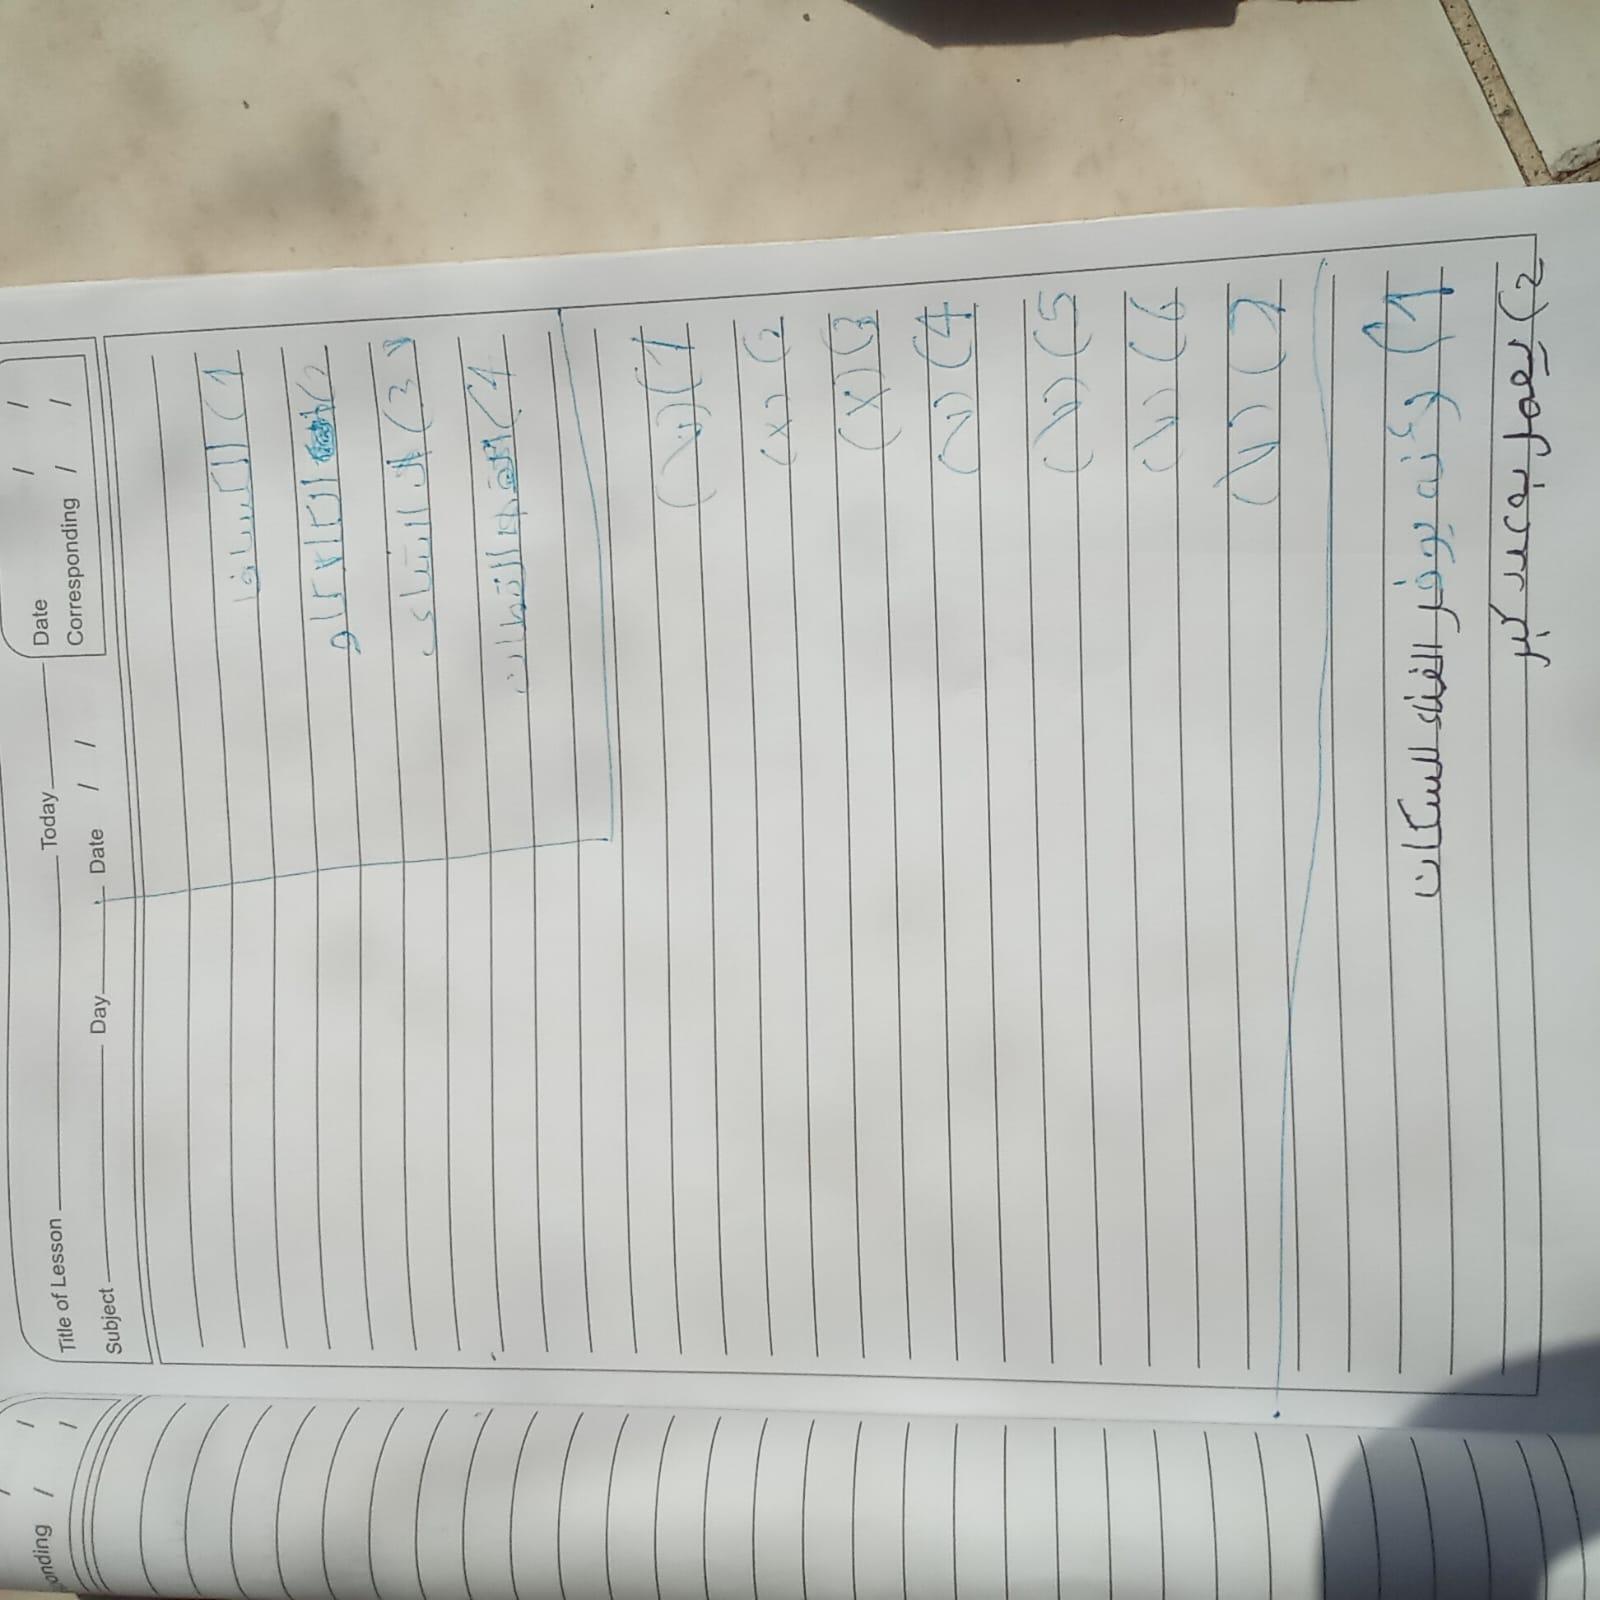 Date / /
Corresponding / /
Title of Lesson Today
Subject Day Date / /
1) الكسافا
2) الكاكاو
3) الشاي
4)
1) (√)
2) (x)
3) (x)
4) (√)
5) (√)
6) (√)
7) (√)
1) لأنه يوفر الغذاء للسكان
2) يعمل بوعيد كبر
onding / /